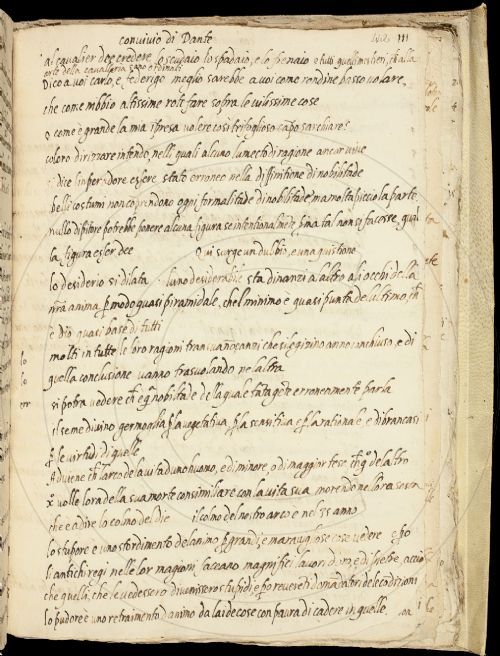 convivio di Dante III
al cavalier dee credere o scudaio lo spadaio, e lo frenaio e tutti quelli mestieri, ch alla
arte della cavalleria sono ordinati
Dico a voi carlo, e federigo meglio sarebbe a voi come rondine basso volare
che come nibbio altissime rote fare sopra le vilissime cose
o come è grande la mia impresa volere così trifoglioso campo sarchiare?
coloro dirizzare intendo, nelli quali alcuno lumetto di ragione ancor vive
dice lo imperadore essere stato erroneo nella diffinitione di nobilitade
belli costumi non comprendono ogni formalitade di nobilitade ma molta piccola parte
nullo dipintore potrebbe ponere alcuna figura se intentionalmente prima tal non si facesse, qual
la figura esser dee Qui surge un dubbio, e una quistione
lo desiderio si dilata l uno desiderabile sta dinanzi a l altro a li occhi della
nra anima per modo quasi piramidale, che l minimo e quasi punta de l ultimo, ch
è Dio quasi base di tutti
molti in tutte le loro ragioni transvanno
quella conclusione vanno trasvolando ne l altra
si potra vedere nobilitade della quale tanta gente erroneamente parla
il seme divino germoglia per la vegetativa per la sensitiva e per la rationale, e dibrancasi
per le virtudi di quelle
Adviene ch l arco de la vita d uno huomo, e di minore, o di maggior tese ch de l altro
volle lora della sua morte consimiliare con la vita sua
che è a dire lo colmo del die il colmo del nostro arco e nel 35 anno
lo stupore è uno stordimento de l animo per grandi, e maravigliose cose vedere
li antichi regi nelle lor magioni faceano magnifici lavori d oro, e di pietre, accio
che quelli, che le vedessero divenissero stupidi e però reverenti domandatori de le conditioni
lo pudore è uno retraimento d animo da laide cose con paura di cadere in quelle